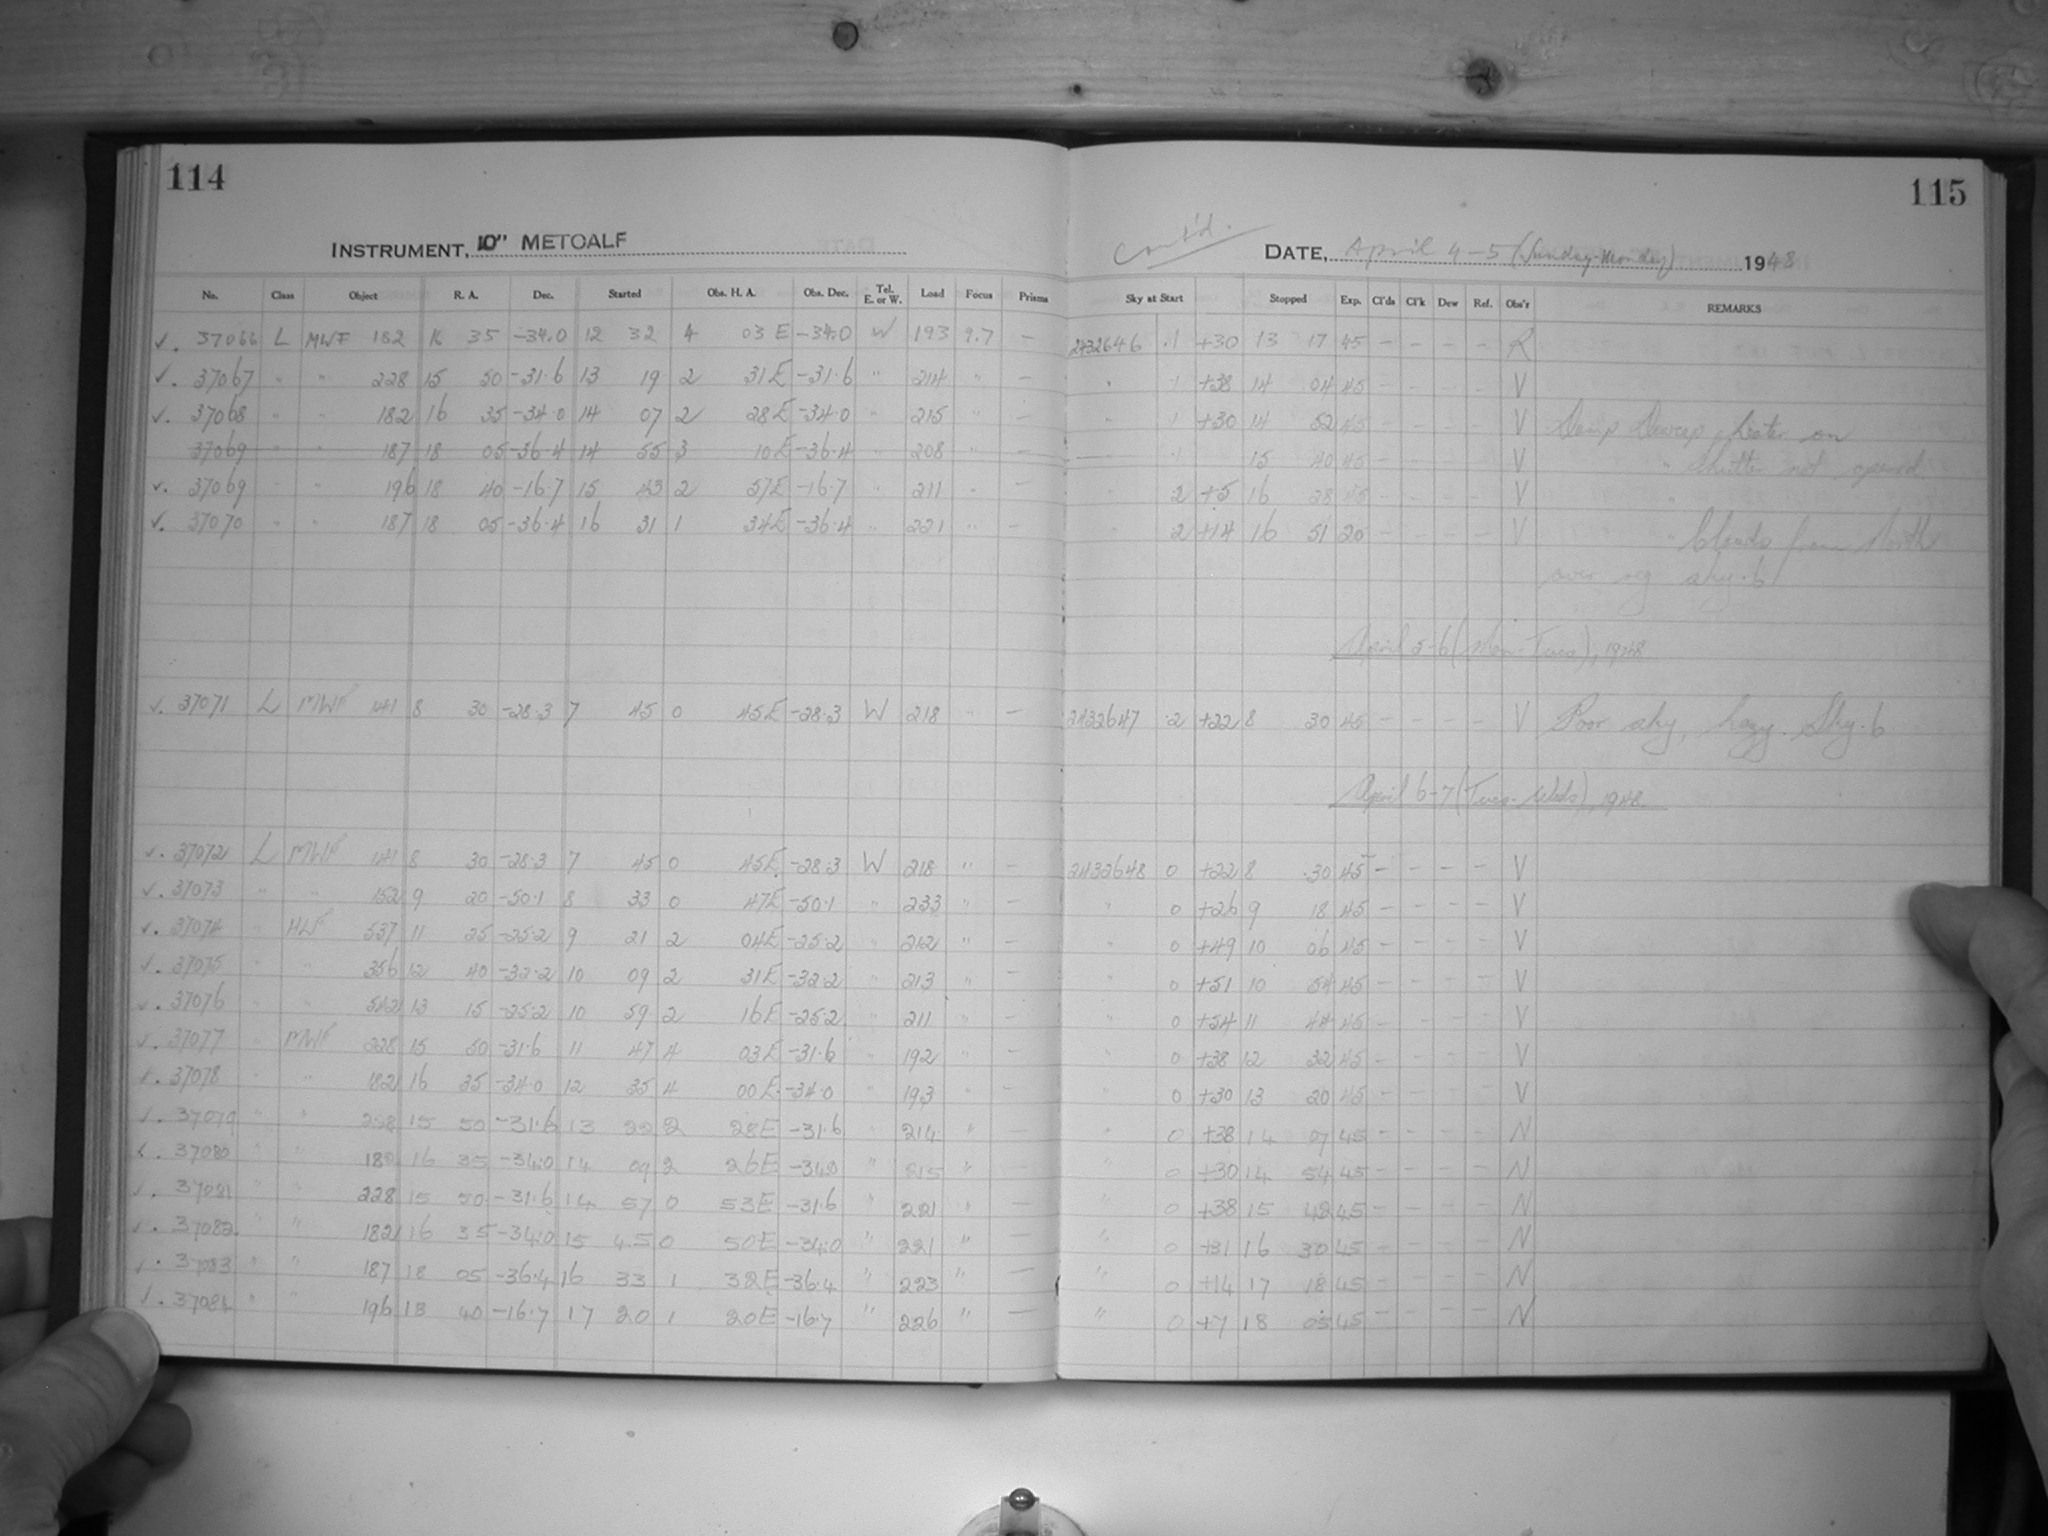 114
115
INSTRUMENT, 10" METCALF
Cont'd. DATE, April 4-5 (Sunday-Monday) 1948
No. Class Object R. A. Dec. Started Obs. H. A. Obs. Dec. Tel. E. or W. Load Focus Prisms Sky at Start Stopped Exp. Cl'ds Cl'k Dew Ref. Obs'r REMARKS
✓. 37066 L MWF 182 16 35 -34.0 12 32 4 03 E -34.0 W 193 9.7 - 2432646 .1 +30 13 17 45 - - - - R
✓. 37067 " " 228 15 50 -31.6 13 19 2 31E -31.6 " 214 " - " .1 +38 14 04 45 - - - - V
✓. 37068 " " 182 16 35 -34.0 14 07 2 28E -34.0 " 215 " - " .1 +30 14 52 45 - - - - V Damp Dewcap heater on
37069 " " 187 18 05 -36.4 14 55 3 10E -36.4 " 208 " - .1 15 40 45 - - - - V " Shutter not opened
✓. 37069 " " 196 18 40 -16.7 15 43 2 57E -16.7 " 211 " - " 2 +5 16 28 45 - - - - V "
✓. 37070 " " 187 18 05 -36.4 16 31 1 34E -36.4 " 221 " - " 2 +14 16 51 20 - - - - V " Clouds from North
over sky .6
April 5-6 (Mon-Tues), 1948
✓. 37071 L MWF 141 8 30 -28.3 7 45 0 45E -28.3 W 218 " - 2432647 .2 +22 8 30 45 - - - - V Poor sky, hazy. Sky .6
April 6-7 (Tues-Weds), 1948
✓. 37072 L MWF 141 8 30 -28.3 7 45 0 45E -28.3 W 218 " - 2432648 0 +22 8 30 45 - - - - V
✓. 37073 " " 152 9 20 -50.1 8 33 0 47E -50.1 " 233 " - " 0 +26 9 18 45 - - - - V
✓. 37074 " HLF 537 11 25 -25.2 9 21 2 04E -25.2 " 212 " - " 0 +49 10 06 45 - - - - V
✓. 37075 " " 356 12 40 -32.2 10 09 2 31E -32.2 " 213 " - " 0 +51 10 54 45 - - - - V
✓. 37076 " " 542 13 15 -25.2 10 59 2 16E -25.2 " 211 " - " 0 +54 11 44 45 - - - - V
✓. 37077 " MWF 228 15 50 -31.6 11 47 4 03E -31.6 " 192 " - " 0 +38 12 32 45 - - - - V
✓. 37078 " " 182 16 35 -34.0 12 35 4 00E -34.0 " 193 " - " 0 +30 13 20 45 - - - - V
✓. 37079 " " 228 15 50 -31.6 13 22 2 28E -31.6 " 214 " - " 0 +38 14 07 45 - - - - N
✓. 37080 " " 182 16 35 -34.0 14 09 2 26E -34.0 " 215 " - " 0 +30 14 54 45 - - - - N
✓. 37081 " " 228 15 50 -31.6 14 57 0 53E -31.6 " 221 " - " 0 +38 15 42 45 - - - - N
✓. 37082 " " 182 16 35 -34.0 15 45 0 50E -34.0 " 221 " - " 0 +31 16 30 45 - - - - N
✓. 37083 " " 187 18 05 -36.4 16 33 1 32E -36.4 " 223 " - " 0 +14 17 18 45 - - - - N
✓. 37084 " " 196 18 40 -16.7 17 20 1 20E -16.7 " 226 " - " 0 +7 18 05 45 - - - - N